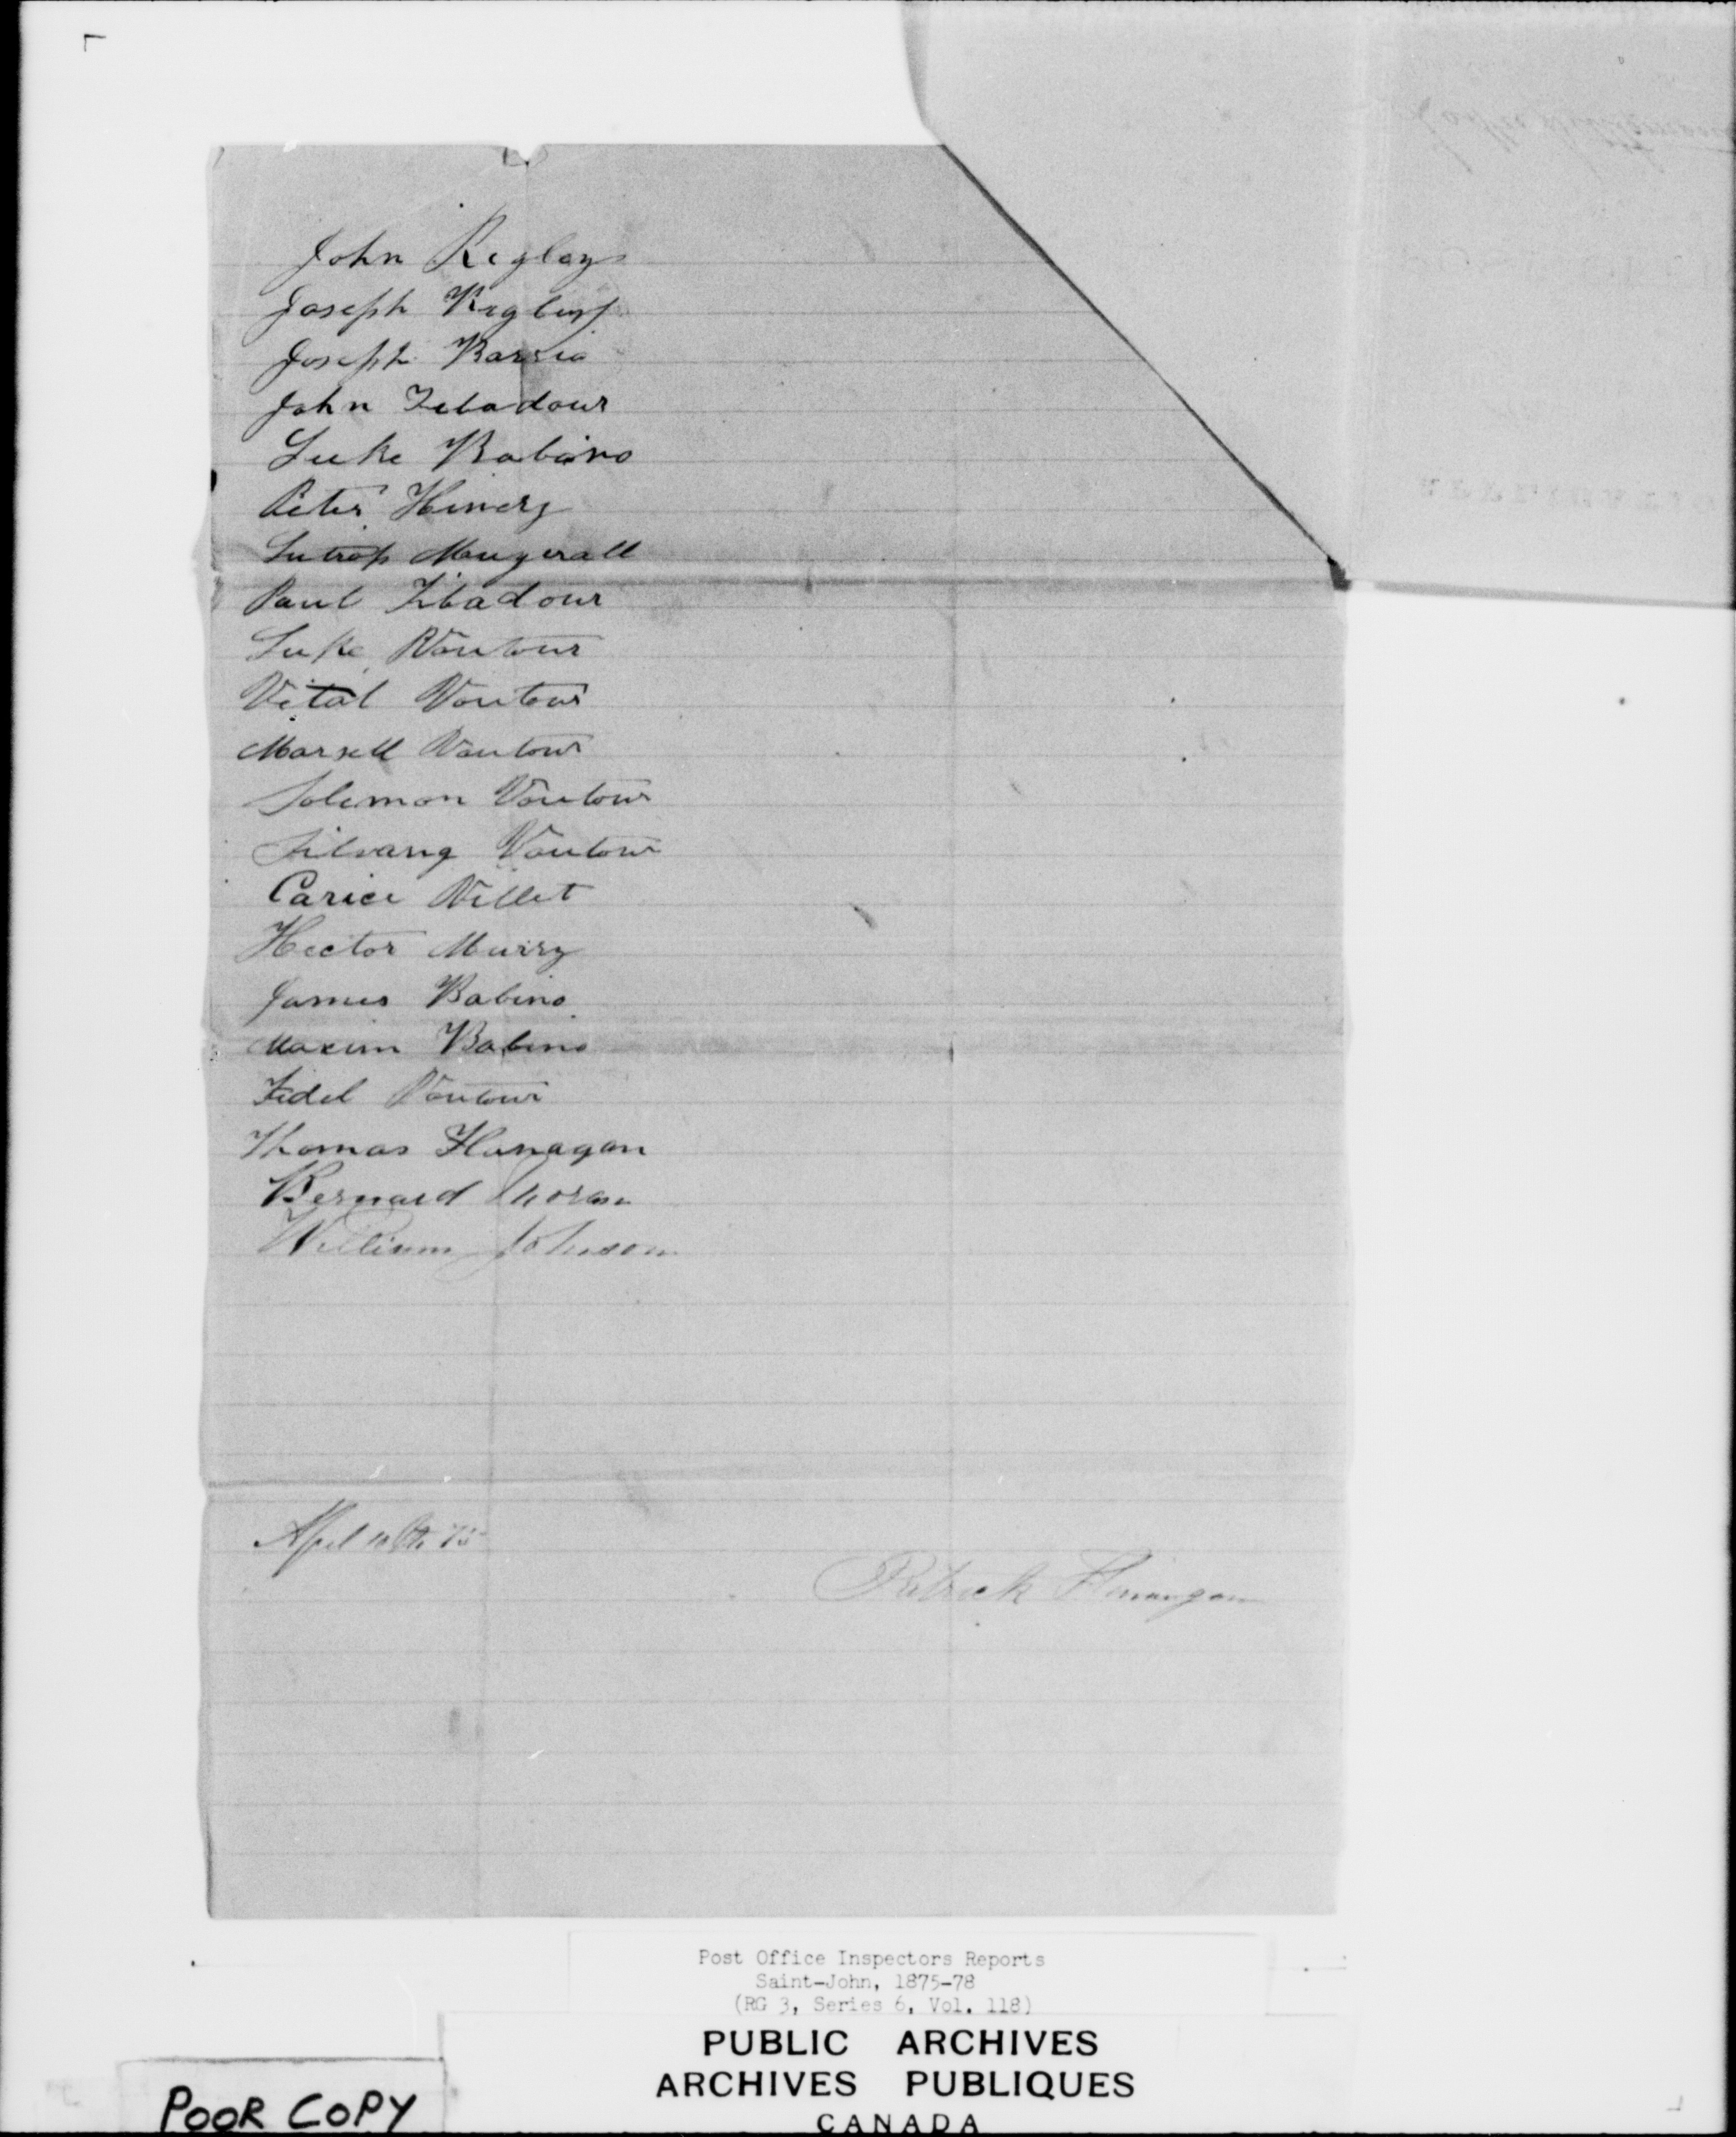 John Reglay
Joseph Regley
Joseph Barria
John Zibadour
Luke Babino
Peter Himery
Mugerall
Paul Zibadour
Luke Voutour
Vital Voutour
Marsell Voutour
Solomon Voutour
Silvang Voutour
Carice Villet
Hector Murry
James Babino
Maxim Babino
Fidel Voutour
Thomas Flanagan
Bernard Moran
William Johnson
April 75
Patrick Flanagan
Post Office Inspectors Reports
Saint-John, 1875-78
(RG 3, Series 6, Vol. 118)
PUBLIC ARCHIVES
ARCHIVES PUBLIQUES
CANADA
POOR COPY